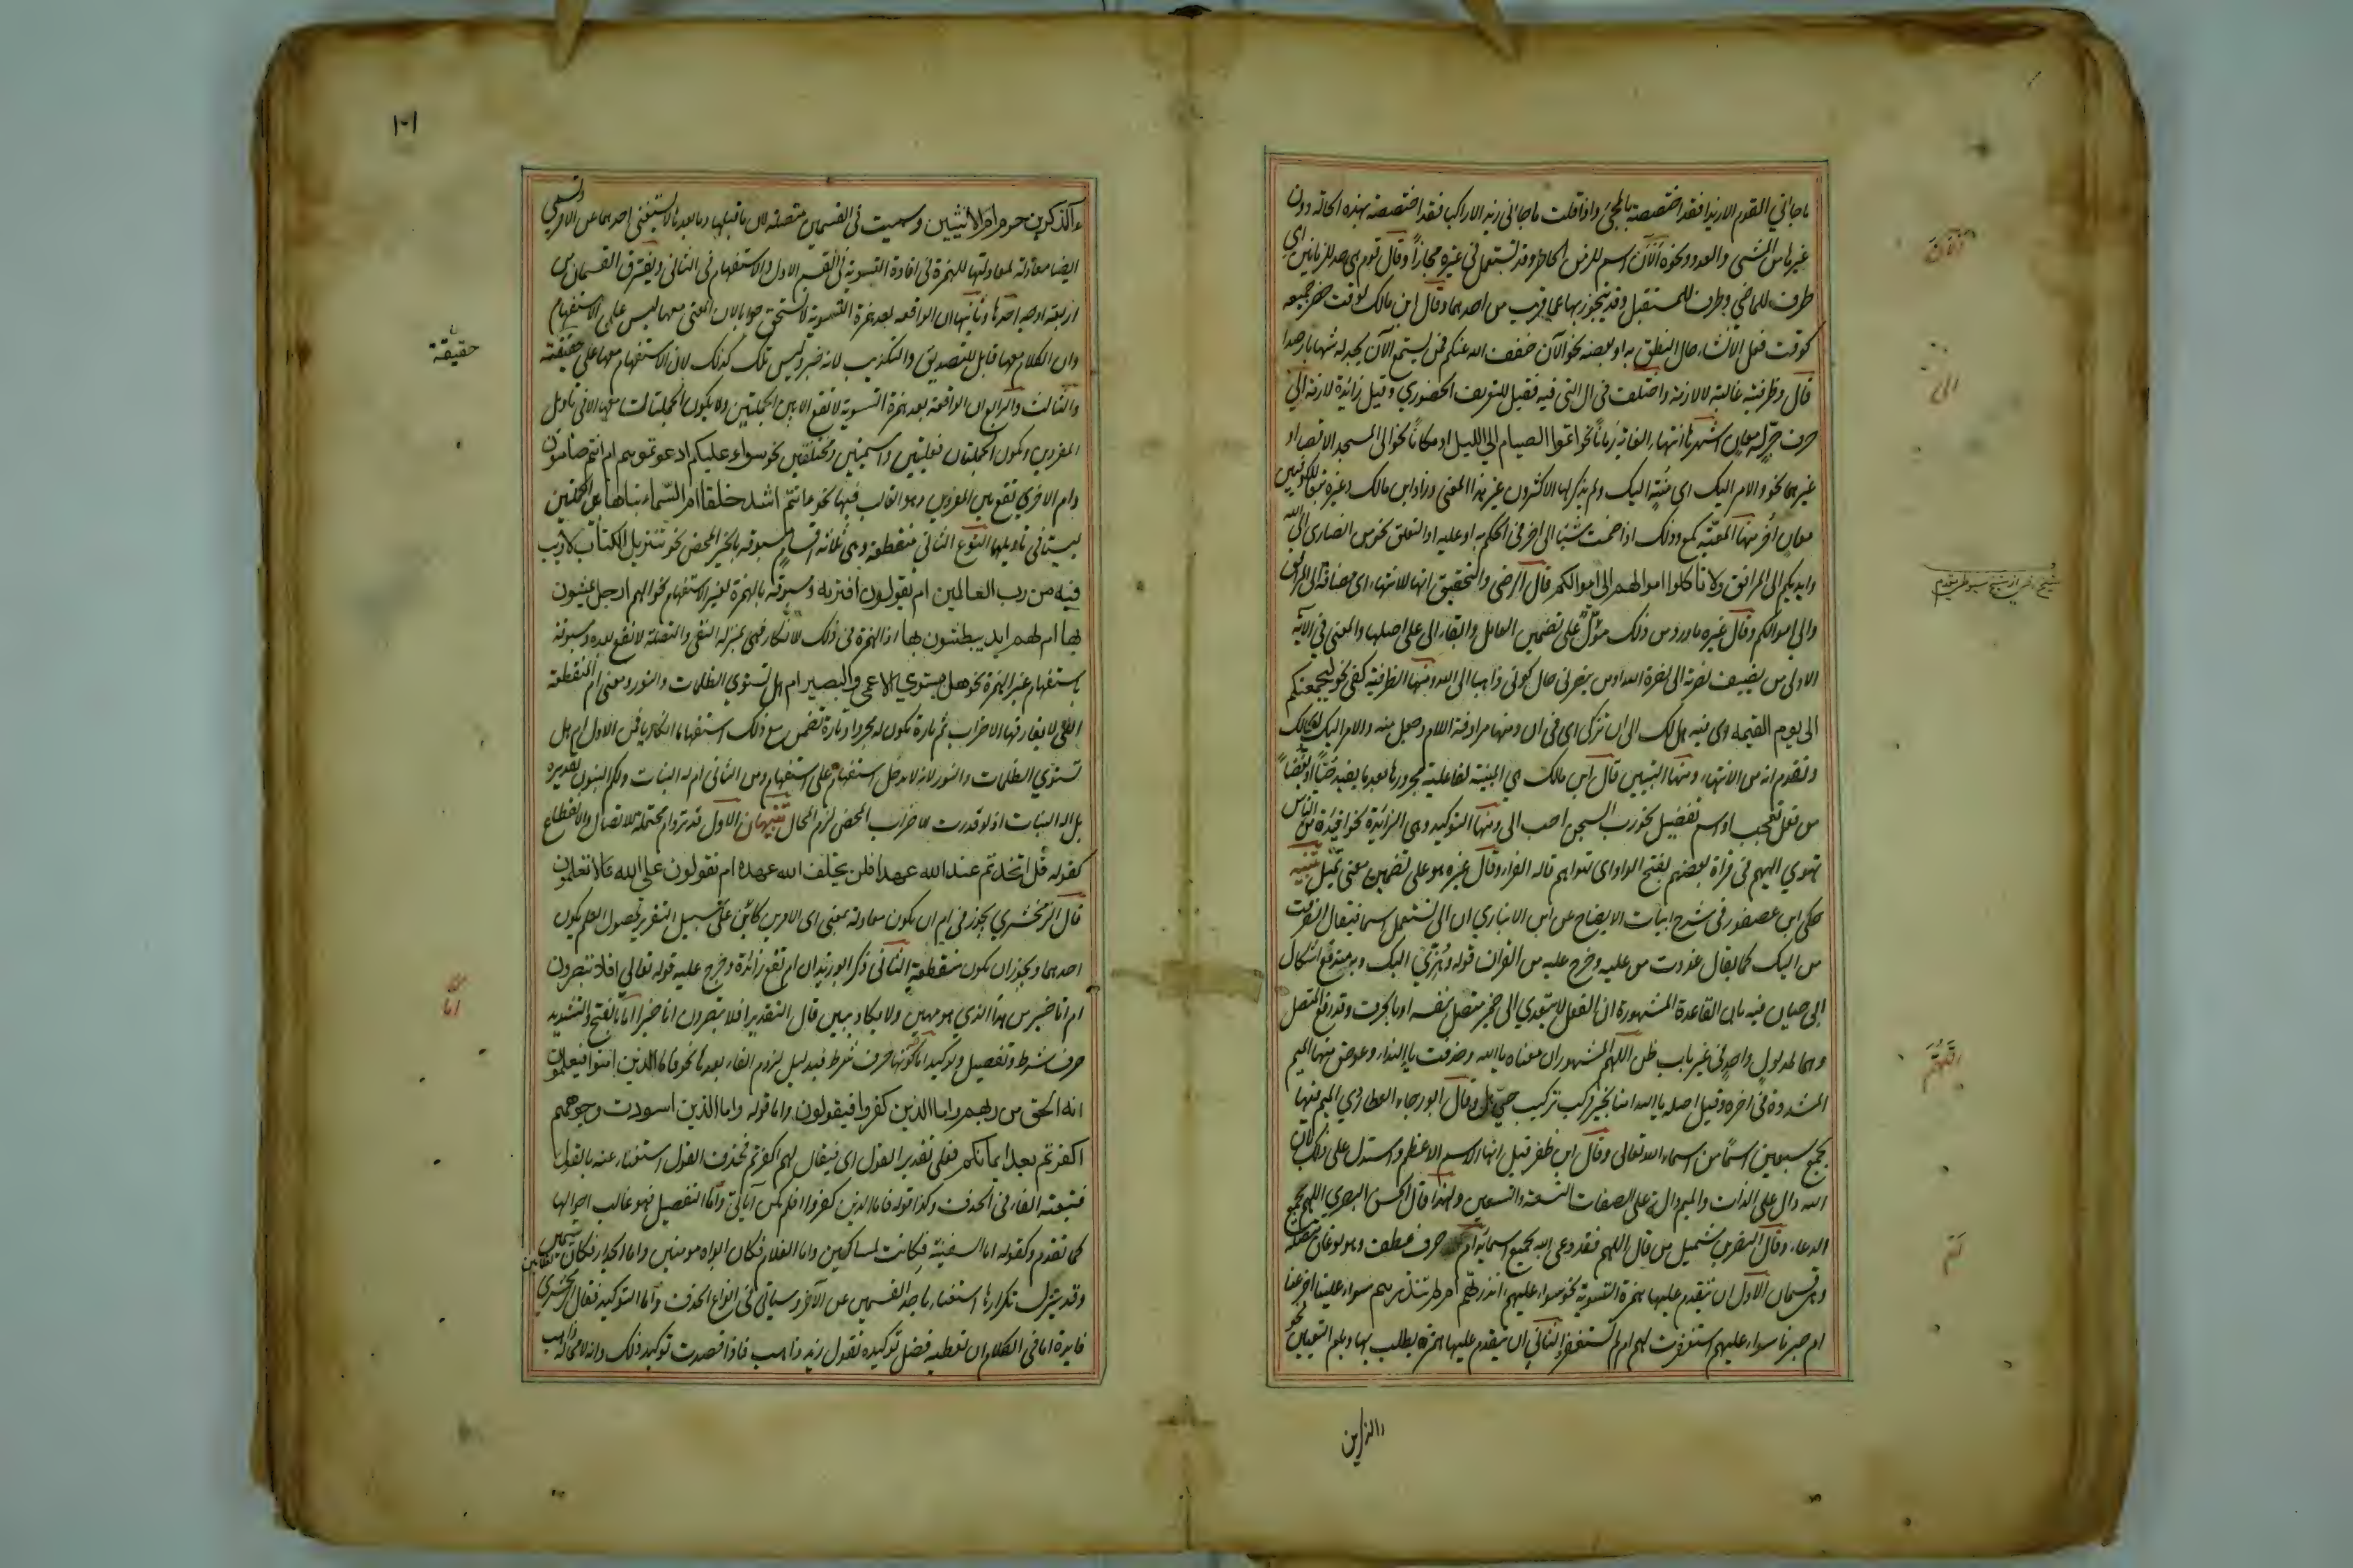 ما جاءني القوم الا زيدا فقد اختصصته بالمجئ واذا قلت ما جاءني زيد الا راكبا فقد اختصصته بهذه الحالة دون
غيرها من المشي والعدو ونحوه الآن اسم للزمن الحاضر وقد تستعمل في غيره مجازاً وقال قوم هي حد للزمانين اي
ظرف للماضي وظرف للمستقبل وقد يتجوز بها عما قرب من احدهما وقال ابن مالك لوقت حضر جميعه
كوقت فعل الانشاء حال النطق به او بعضه نحو الآن خفف الله عنكم فمن يستمع الآن يجد له شهابا رصدا
قال وظرفيته غالبة لا لازمة واختلف في ال التي فيه فقيل للتعريف الحضوري وقيل زائدة لازمة الي
حرف جر له معان اشهرها انتهاء الغاية زماناً نحو اتموا الصيام الي الليل او مكاناً نحو الى المسجد الاقصا او
غيرهما نحو والامر اليك اي منتهٍ اليك ولم يذكر لها الاكثرون غير هذا المعنى وزاد ابن مالك وغيره تبعا للكوفيين
معان اُخر منها المعيّة كمع وذلك اذا ضممت شيئا الى اخر في الحكم به او عليه او التعلق نحو من انصاري الى الله
وايديكم الى المرافق ولا تأكلوا اموالهم الى اموالكم قال الرضي والتحقيق انها للانتهاء اي مضافة الى المرافق
والي اموالكم وقال غيره ما ورد من ذلك مؤوّل على تضمين العامل وابقاء الى على اصلها والمعنى في الآية
الاولى من يضيف نصرته الى نصرة الله او من ينصرني حال كوني ذاهبا الى الله ومنها الظرفية كفي نحو ليجمعنكم
الى يوم القيمة اي فيه هل لك الى ان تزكى اي في ان ومنها مرادفة اللام وجعل منه والامر اليك اي لك
وتقدم انه من الانتهاء ومنها التبيين قال ابن مالك هي المبينة لفاعلية مجرورها بعد ما يفيد حبّاً او بغضاً
من فعل تعجب او اسم تفضيل نحو رب السجن احب الي ومنها التوكيد وهي الزائدة نحو افئدة من الناس
تهوي اليهم في قراة بعضهم بفتح الواو اي تهواهم قاله الفراء وقال غيره هو على تضمين معنى تميل تنبيه
حكى ابن عصفور في شرح ابيات الايضاح عن ابن الانباري ان الى تستعمل اسما فيقال انصرفت
من اليك كما يقال غدوت من عليه وخرج عليه من القران قوله وهُزّي اليك وبه يندفع اشكال
ابي حيان فيه بان القاعدة المشهورة ان الفعل لا يتعدي الى ضمير متصل بنفسه او بالحرف وقد رفع المتصل
وهما لمدلول واحد في غير باب ظن اللهم المشهور ان معناه يا الله وحذفت يا النداء وعوض منها الميم
المشددة في اخره وقيل اصله يا الله امنا بخير فركب تركيب حيّهل وقال ابو رجاء العطاردي الميم فيها
تجمع سبعين اسمًا من اسماء الله تعالى وقال ابن ظفر قيل انها الاسم الاعظم واستدل على ذلك بان
الله دال على الذات والميم دالة على الصفات التسعة والتسعين ولهذا قال الحسن البصري اللهم تجمع
الدعاء وقال النضر بن شميل من قال اللهم فقد دعى الله بجميع اسمائه ام حرف عطف وهو نوعان متصلة
وهي قسمان الاول ان يتقدم عليها همزة التسوية نحو سواء عليهم ءانذرتهم ام لم تنذرهم سواء علينا اجزعنا
ام صبرنا سواء عليهم استغفرت لهم ام لم تستغفر والثاني ان يتقدم عليها همزة يطلب بها وبام التعيين نحو
الآن
الى
اللَّهُمَّ
اَم
ءآلذكرين حرم ام الانثيين وسميت في القسمين متصلة لان ما قبلها وما بعدها لا يستغنى احدهما عن الاخر وتسمى
ايضا معادلة لمعادلتها للهمزة في افادة التسوية في القسم الاول والاستفهام في الثاني ويفترق القسمان من
اربعة اوجه احدها وثانيها ان الواقعة بعد همزة التسوية لا تستحق جوابا لان المعنى معها ليس على الاستفهام
وان الكلام معها قابل للتصديق والتكذيب لانه خبر وليس تلك كذلك لان الاستفهام معها على حقيقته
والثالث والرابع ان الواقعة بعد همزة التسوية لا تقع الا بين الجملتين ولا يكون الجملتان معها الا في تاويل
المفردين وتكون الجملتان فعليتين واسميتين ومختلفتين نحو سواء عليكم ادعوتموهم ام انتم صامتون
وام الاخرى تقع بين المفردين وهو الغالب فيها نحو ءانتم اشد خلقا ام السماء بناها وبين جملتين
ليستا في تاويلهما النوع الثاني منقطعة وهي ثلاثة اقسام مسبوقة بالخبر المحض نحو تنزيل الكتاب لا ريب
فيه من رب العالمين ام يقولون افتريه ومسبوقة بالهمزة لغير الاستفهام نحو الهم ارجل يمشون
بها ام لهم ايد يبطشون بها اذ الهمزة في ذلك للانكار فهي بمنزلة النفي والمتصلة لا تقع بعده ومسبوقة
باستفهام غير الهمزة نحو هل يستوي الاعمى والبصير ام هل تستوي الظلمات والنور ومعنى ام المنقطعة
التي لا يفارقها الاضراب ثم تارة تكون له مجردا وتارة تضمن مع ذلك استفهاما انكاريا فمن الاول ام هل
تستوي الظلمات والنور لانه لا يدخل استفهام على استفهام ومن الثاني ام له البنات ولكم البنون تقديره
بل اله البنات اذ لو قدرت للاضراب المحض لزم المحال تنبيهان الاول قد ترد ام محتملة للاتصال والانقطاع
كقوله قل اتخذتم عند الله عهدا فلن يخلف الله عهده ام تقولون على الله ما لا تعلمون
قال الزمخشري يجوز في ام ان يكون معادلة بمعنى اي الامرين كائن على سبيل التقرير لحصول العلم بكون
احدهما ويجوز ان يكون منقطعة الثاني ذكر ابو زيد ان ام تقع زائدة وخرج عليه قوله تعالى افلا تبصرون
ام انا خير من هذا الذي هو مهين ولا يكاد يبين قال التقدير افلا تبصرون انا خير اما بالفتح والتشديد
حرف شرط وتفصيل وتوكيد اما كونها حرف شرط فبدليل لزوم الفاء بعدها نحو فاما الذين امنوا فيعلمون
انه الحق من ربهم واما الذين كفروا فيقولون واما قوله واما الذين اسودت وجوههم
اكفرتم بعد ايمانكم فعلى تقدير القول اي فيقال لهم اكفرتم فحذف القول استغناء عنه بالمقول
فتبعته الفاء في الحذف وكذا قوله فاما الذين كفروا افلم تكن آياتي واما التفصيل فهو غالب احوالها
كما تقدم وكقوله اما السفينة فكانت لمساكين واما الغلام فكان ابواه مومنين واما الجدار فكان لغلامين يتيمين
وقد يترك تكرارها استغناء باحد القسمين عن الآخر وسياتي في انواع الحذف واما التوكيد فقال الزمخشري
فايدة اما في الكلام ان تعطيه فضل توكيد تقول زيد ذاهب فاذا قصدت توكيد ذلك وانه لا محالة ذاهب
١٠١
حقيقة
اما